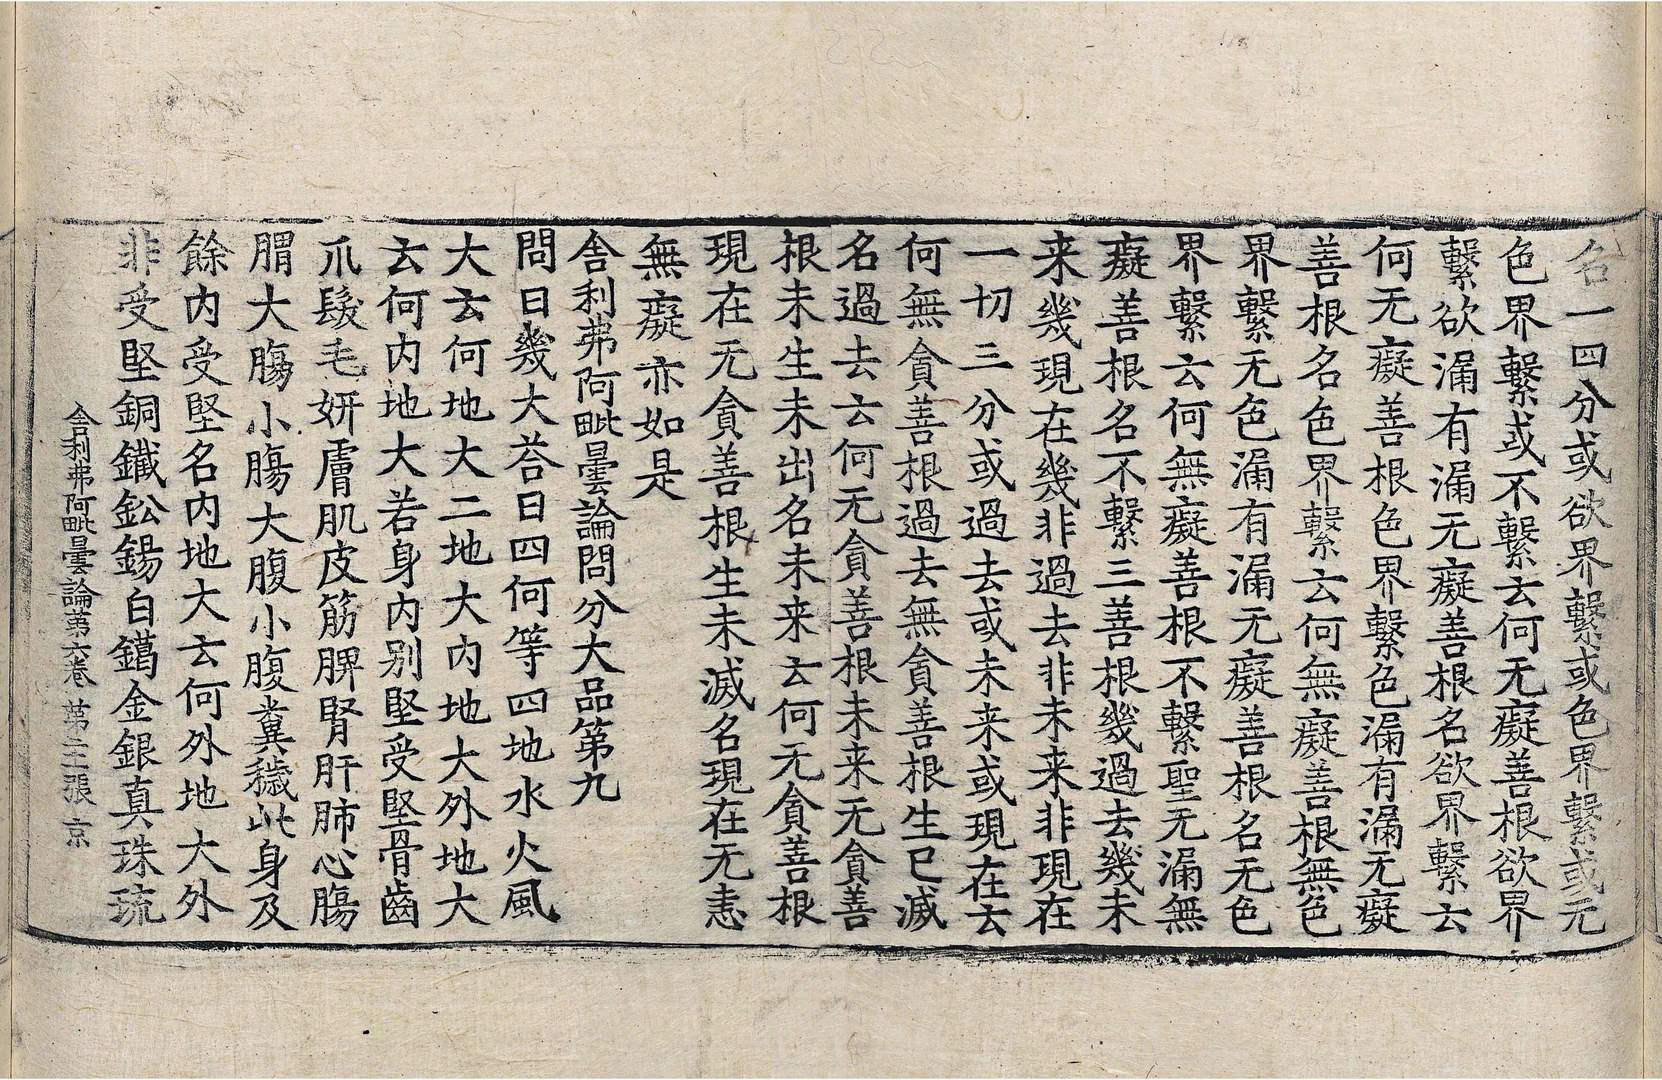 名一四分或欲界繫或色界繫或无
色界繫或不繫云何无癡善根欲界
繫欲漏有漏无癡善根名欲界繫云
何无癡善根色界繫色漏有漏无癡
善根名色界繫云何無癡善根無色
界繫无色漏有漏无癡善根名无色
界繫云何無癡善根不繫聖无漏無
癡善根名不繫三善根幾過去幾未
来幾現在幾非過去非未来非現在
一切三分或過去或未来或現在云
何無貪善根過去無貪善根生已滅
名過去云何无貪善根未来无貪善
根未生未出名未来云何无貪善根
現在无貪善根生未滅名現在无恚
無癡亦如是
舍利弗阿毗曇論問分大品第九
問曰幾大荅曰四何等四地水火風
大云何地大二地大内地大外地大
云何内地大若身内别堅受堅骨齒
爪髮毛妍膚肌皮筋脾腎肝肺心腸
胃大腸小腸大腹小腹糞穢此身及
餘内受堅名内地大云何外地大外
非受堅銅鐵鈆錫白鑞金銀真珠琉
舍利弗阿毗曇論第六卷 第三張 京